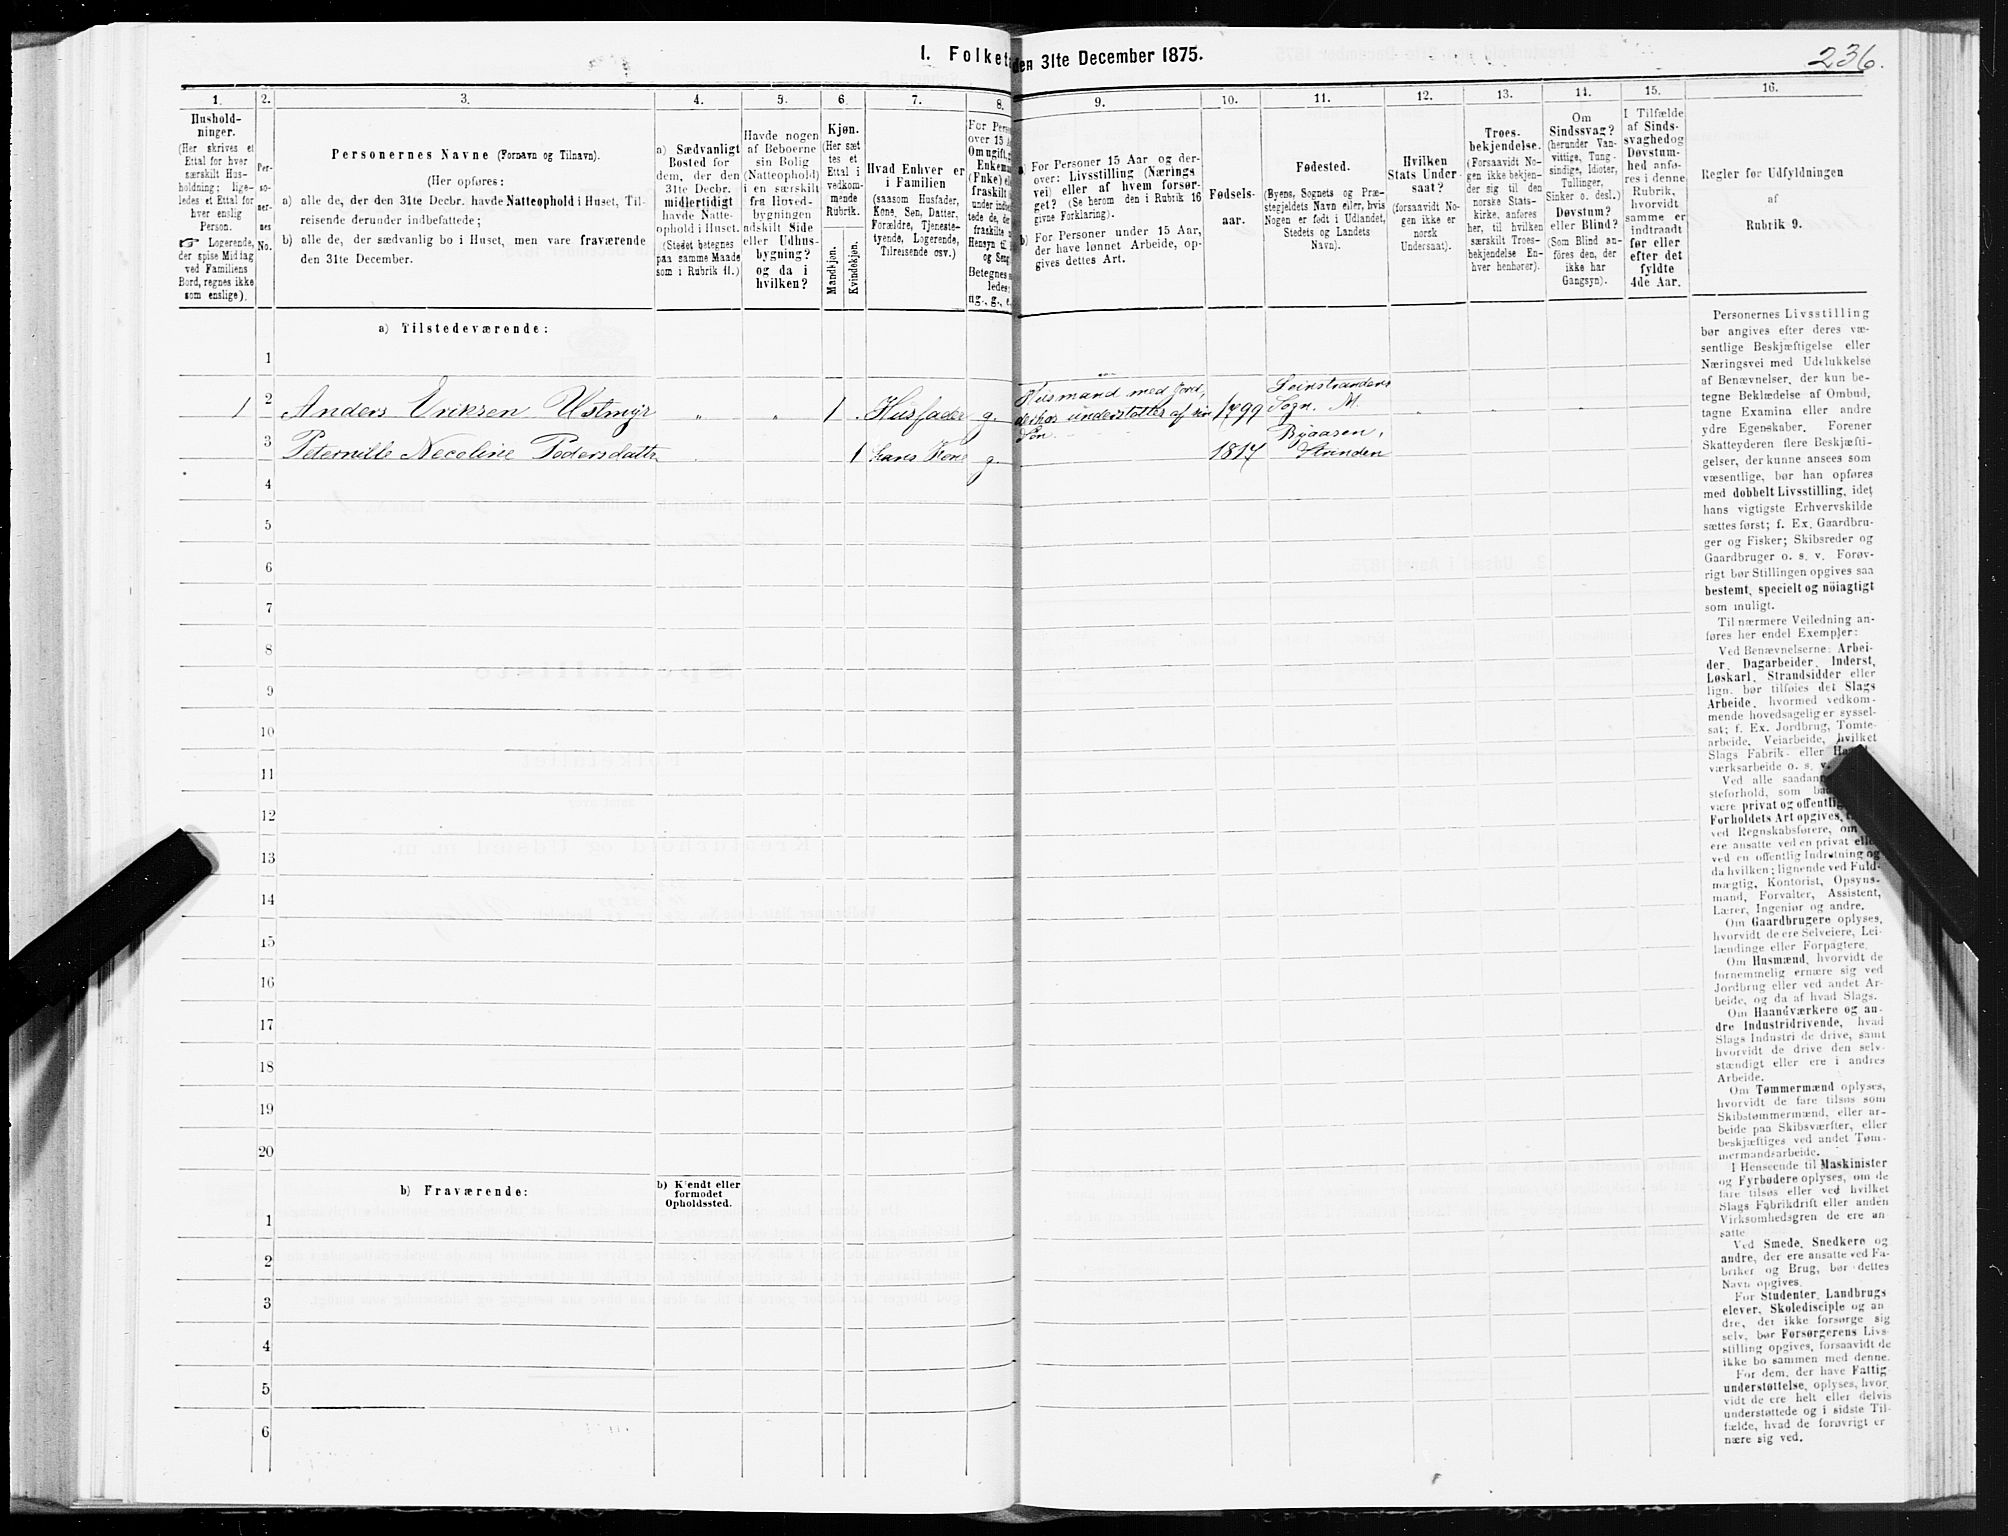 I. Folket
den 31te December 1875.
236.
1.
2.
3.
4.
5.
6.
7.
8.
9.
10.
11.
12.
13.
14.
15.
16.
Hushold-
ninger.
(Her skrives et
Ettal for hver
særskilt Hus-
holdning; lige-
ledes et Ettal for
hver enslig
Person.
☞ Logerende,
der spise Middag
ved Familiens
Bord, regnes ikke
som enslige).
Per-
so-
ner-
nes
No.
Personernes Navne (Fornavn og Tilnavn).
(Her opføres:
a) alle de, der den 31te Decbr. havde Natteophold i Huset, Til-
reisende derunder indbefattede;
b) alle de, der sædvanlig bo i Huset, men vare fraværende
den 31te December.
a) Sædvanligt
Bosted for
dem, der den
31te Decbr.
midlertidigt
havde Natte-
ophold i Huset.
(Stedet betegnes
paa samme Maade
som i Rubrik 11.)
Havde nogen
af Beboerne
sin Bolig
(Natteophold)
i en særskilt
fra Hoved-
bygningen
adskilt Side
eller Udhus-
bygning?
og da i
hvilken?
Kjøn.
(Her sæt
tes et
Ettal i
vedkom-
mende
Rubrik.
Mandkjøn.
Kvindekjøn.
Hvad Enhver er
i Familien
(saasom Husfader,
Kone, Søn, Datter,
Forældre, Tjeneste-
tyende, Logerende,
Tilreisende osv.)
For Perso
over 15 A
Om ugift, g
Enkema
(Enke) el
fraskilt
under indbe
tede de, de
fraskilte
Hensyn til
og Seng
Betegnes
ledes:
ug., g., e.
a) For Personer 15 Aar og der-
over: Livsstilling (Nærings
vei) eller af hvem forsør-
get? (Se herom den i Rubrik 16
givne Forklaring).
b) For Personer under 15 Aar,
der have lønnet Arbeide, op-
gives dettes Art.
Fødsels-
aar.
Fødested.
(Byens, Sognets og Præ-
stegjeldets Navn eller, hvis
Nogen er født i Udlandet,
Stedets og Landets
Navn).
Hvilken
Stats Under-
saat?
(forsaavidt No-
gen ikke er
norsk
Undersaat).
Troes-
bekjendelse.
(Forsaavidt No-
gen ikke bekjen-
der sig til den
norske Stats-
kirke, anføres
her, til hvilken
særskilt Troes-
bekjendelse En-
hver henhører).
Om
Sindssvag?
(herunder Van-
vittige, Tung-
sindige, Idioter,
Tullinger,
Sinker o. desl.)
Døvstum?
eller Blind?
(Som Blind an-
føres den, der
ikke har
Gangsyn).
I Tilfælde
af Sinds-
svaghed og
Døvstum-
hed anfø-
res i denne
Rubrik,
hvorvidt
samme er
indtraadt
før eller
efter det
fyldte
4de Aar.
Regler for Udfyldningen
af
Rubrik 9.
a) Tilstedeværende:
1
1 2 Anders Eriksen Ustmyr „ „ 1 . Husfader g. Husmand med Jord, derhos understøttes af sin Søn 1799 Leinstrandens Sogn. M.
3 Peternille Nicoline Pedersdatte . 1 hans Kone g. 1817 Byaasen, Strinden
4
5
6
7
8
9
10
11
12
13
14
15
16
17
18
19
20
b) Fraværende:
b) Kjendt eller
formodet
Opholdssted.
1
2
3
4
5
6
Personernes Livsstilling
bør angives efter deres væ-
sentlige Beskjæftigelse eller
Næringsvei med Udelukkelse
af Benævnelser, der kun be-
tegne Beklædelse af Ombud,
tagne Examina eller andre
ydre Egenskaber. Forener
Skatteyderen flere Beskjæfti-
gelser, der kunne ansees som
væsentlige, bør han opføres
med dobbelt Livsstilling, idet
hans vigtigste Erhvervskilde
sættes først; f. Ex. Gaardbru-
ger og Fisker; Skibsreder og
Gaardbruger o. s. v. Forøv-
rigt bør Stillingen opgives saa
bestemt, specielt og nöiagtigt
som muligt.
Til nærmere Veiledning an-
føres her endel Exempler:
Ved Benævnelserne: Arbei-
der, Dagarbeider, Inderst,
Løskarl, Strandsidder eller
lign. bør tilføies det Slags
Arbeide, hvormed vedkom-
mende hovedsagelig er syssel-
sat; f. Ex. Jordbrug, Tomte-
arbeide, Veiarbeide, hvilket
Slags Fabrik- eller
værksarbeide o. s. v.
Ved alle saadan
steforhold, som
være privat og offentlig
Forholdets Art opgives,
ved Regnskabsførere, om
ere ansatte ved en privat elle
ved en offentlig Indretning og
da hvilken; lignende ved Fuld-
mægtig, Kontorist, Opsyns-
mand, Forvalter, Assistent,
Lærer, Ingeniør og andre.
Om Gaardbrugere oplyses,
hvorvidt de ere Selveiere, Lei-
lændinge eller Forpagtere.
Om Husmænd, hvorvidt de
fornemmelig ernære sig ved
Jordbrug eller ved andet Ar-
beide, og da af hvad Slags.
Om Haandværkere og an-
dre Industridrivende, hvad
Slags Industri de drive, samt
hvorvidt de drive den selv-
stændigt eller ere i andres
Arbeide.
Om Tømmermænd oplyses,
hvorvidt de fare tilsøs som
Skibstømmermænd, eller ar-
beide paa Skibsværfter, eller
beskjæftiges ved andet Tøm-
mermandsarbeide.
I Henseende til Maskinister
og Fyrbødere oplyses, om de
fare tilsøs eller ved hvilket
Slags Fabrikdrift eller anden
Virksomhedsgren de ere an
satte
Ved Smede, Snedkere og
andre, der ere ansatte ved Fa-
briker og Brug, bør dettes
Navn opgives.
For Studenter, Landbrugs
elever, Skoledisciple og an
dre, der ikke forsørge sig
selv, bør Forsørgerens Livs-
stilling opgives, forsaavidt de
ikke bo sammen med denne.
For dem, der have Fattig
understøttelse, oplyses, hvor
vidt de ere helt eller delvis
understøttede og i sidste Til-
fælde, hvad de forøvrigt er
nære sig ved.